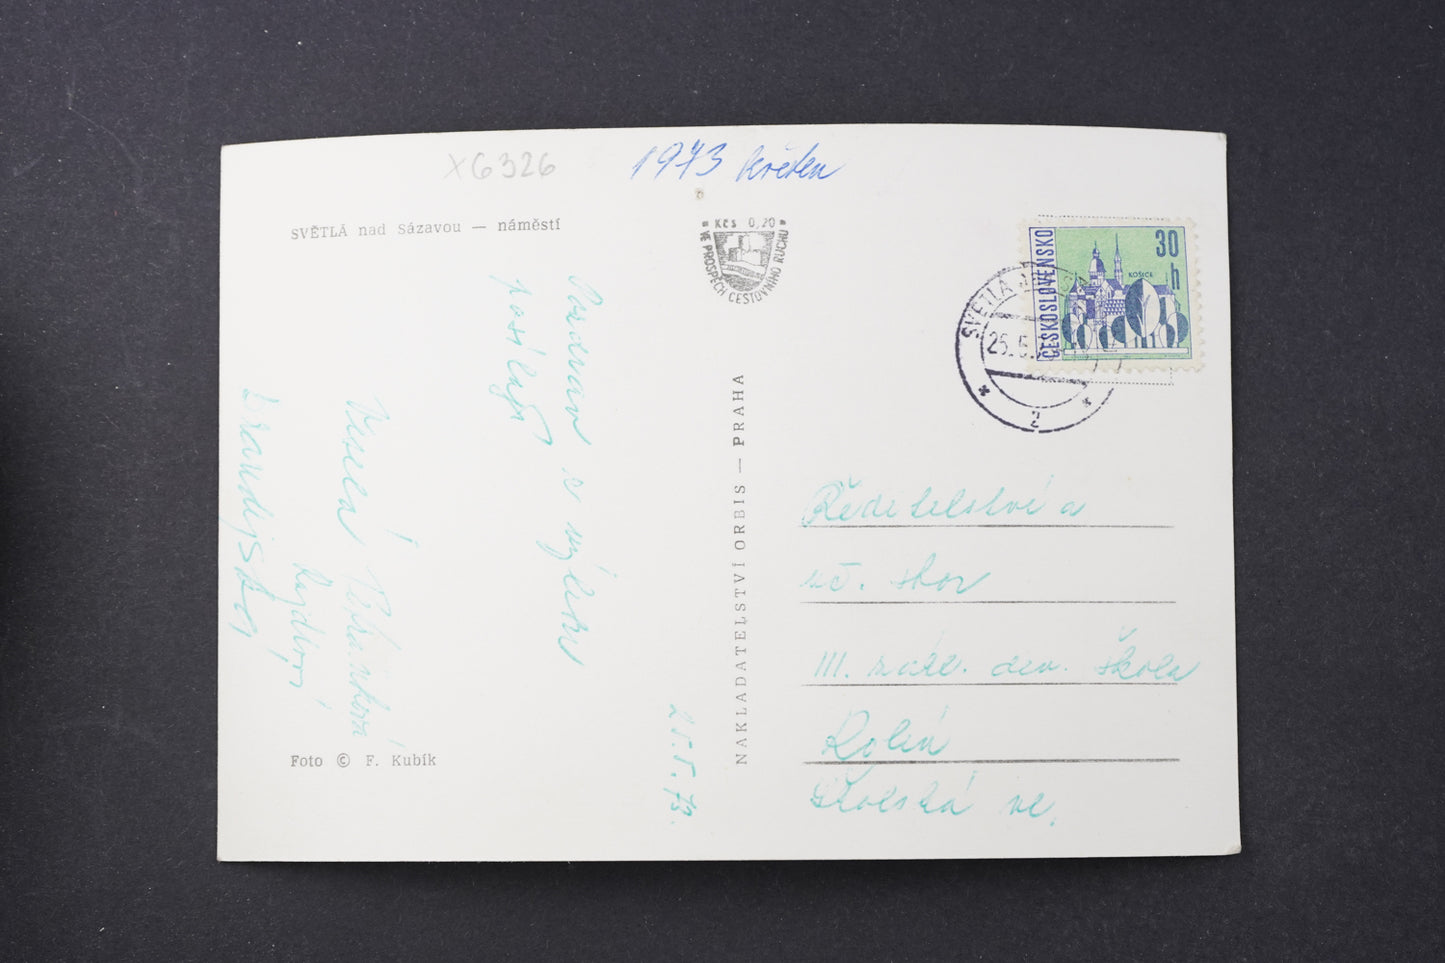 X6326
1973 květen
SVĚTLÁ nad Sázavou — náměstí
Kčs 0,20
VE PROSPĚCH CESTOVNÍHO RUCHU
ČESKOSLOVENSKO
30
h
KOŠICE
SVĚTLÁ
25.5.
2
Pozdrav z výletu
posílají
Veselá
25.5.73.
NAKLADATELSTVÍ ORBIS — PRAHA
Ředitelství a
uč. sbor
III. zákl. dev. škola
Kolín
Školská ul.
Foto © F. Kubík